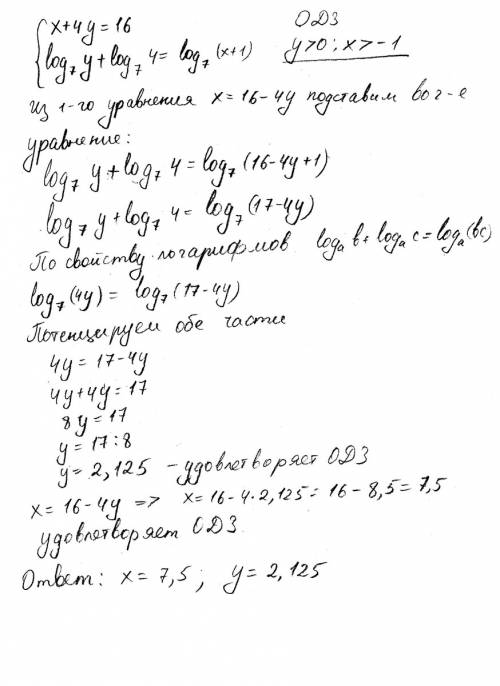 x+4y=16
ОДЗ
log₇ y + log₇ 4 = log₇ (x+1)
y>0; x>-1
из 1-го уравнения x=16-4y подставим во 2-е
уравнение:
log₇ y + log₇ 4 = log₇ (16-4y+1)
log₇ y + log₇ 4 = log₇ (17-4y)
По свойству логарифмов logₐ b + logₐ c = logₐ (bc)
log₇ (4y) = log₇ (17-4y)
Потенцируем обе части
4y = 17-4y
4y+4y=17
8y=17
y=17:8
y=2,125 - удовлетворяет ОДЗ
x=16-4y => x=16-4·2,125=16-8,5=7,5
удовлетворяет ОДЗ.
Ответ: x=7,5; y=2,125